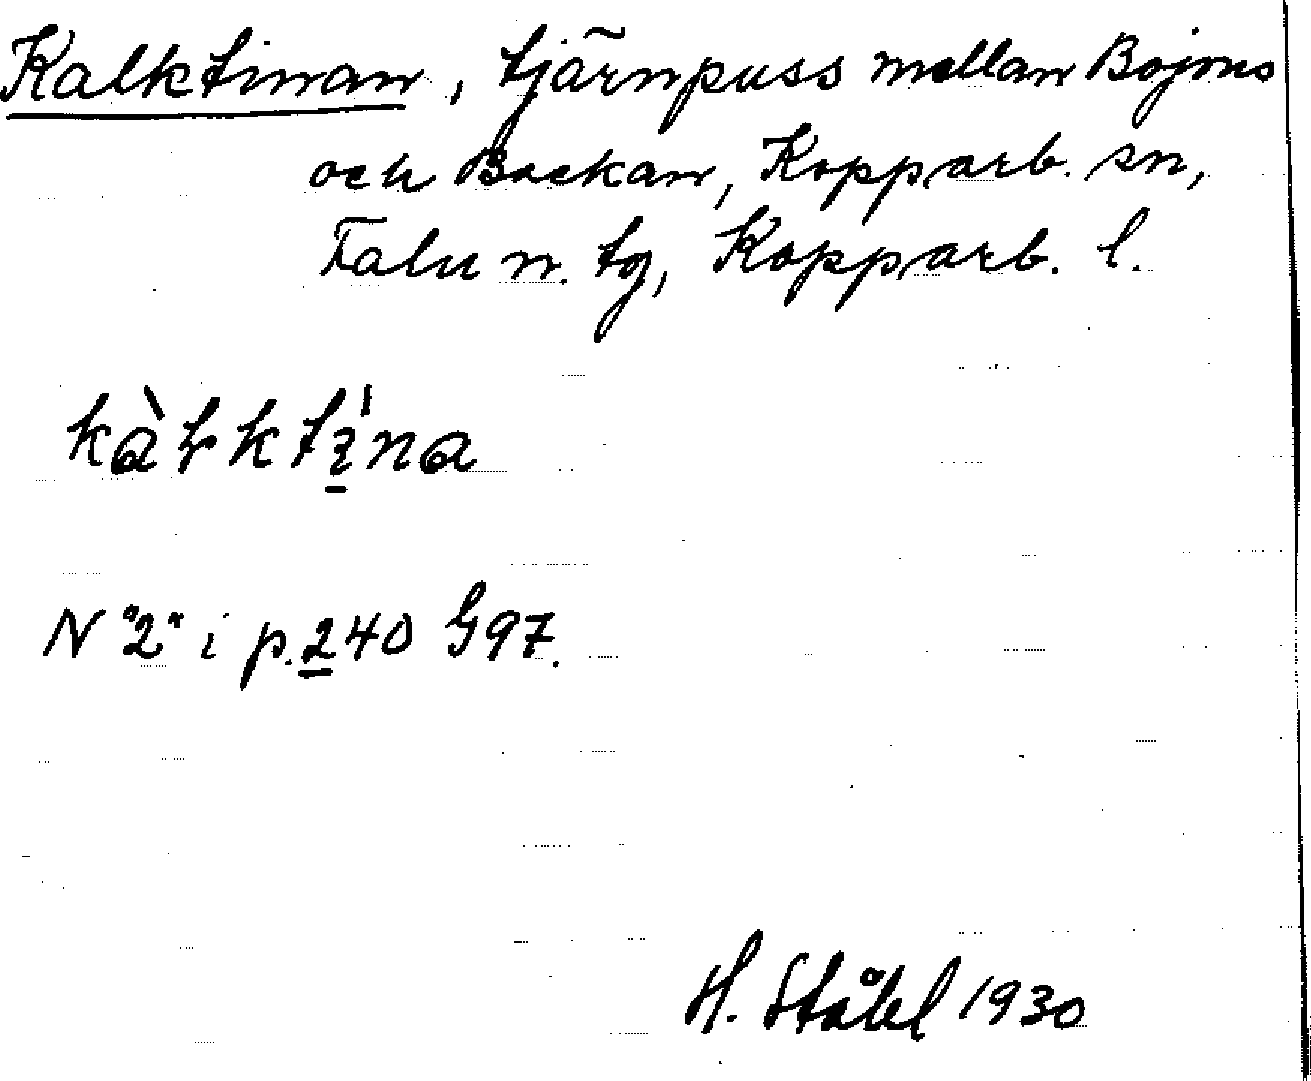 Kalktinan, tjärnpuss mellan Bojons
och Backan, Kopparb. sn,
Falu n. tg, Kopparb. l.
N "2" i p.240 G97.
H. Ståhl 1930